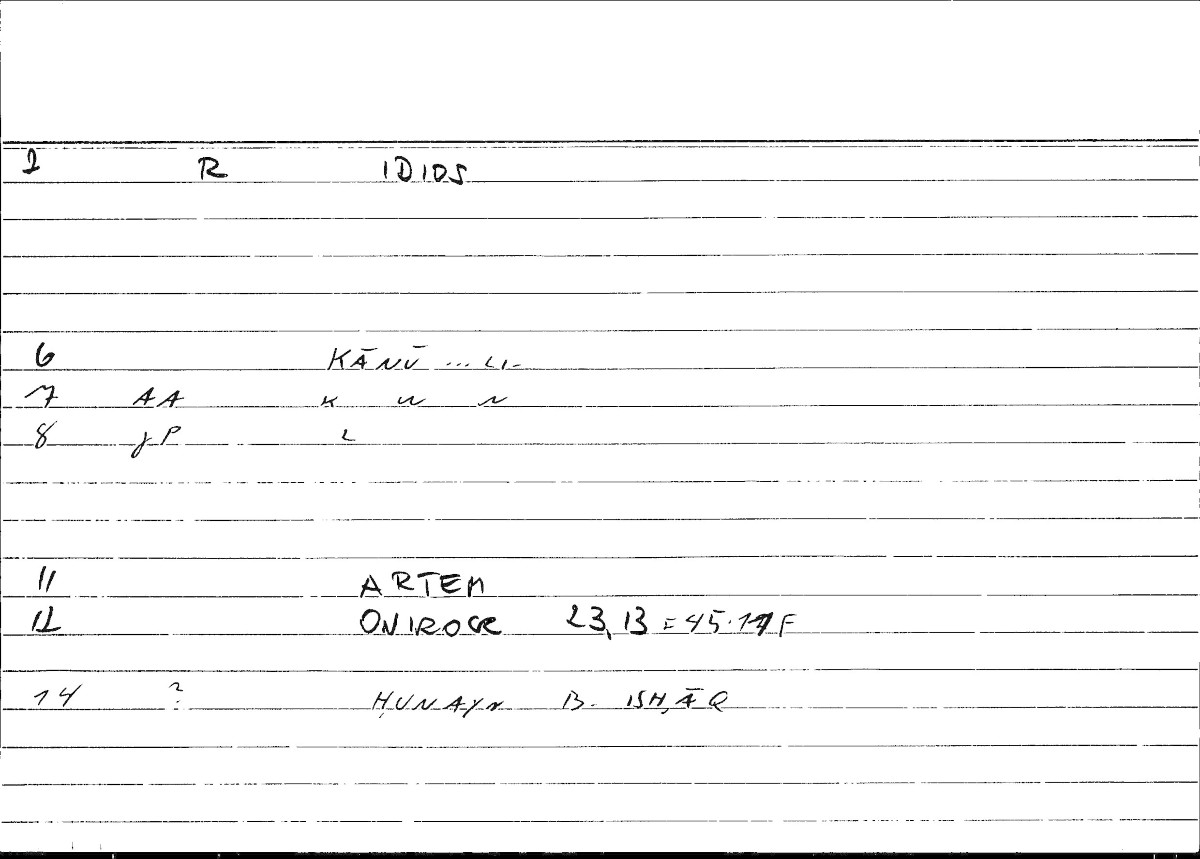 1 R IDIOS
6 KĀNŪ ... LI-
7 AA K W N
8 JP L
11 ARTEM
12 ONIROCR 23,13 = 45.14F
14 ? ḤUNAYN B. ISḤĀQ